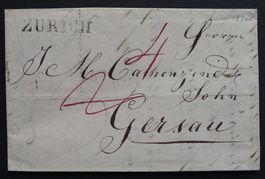 ZURICH
4
Herren
J. M. Camenzind
Sohn
Gersau